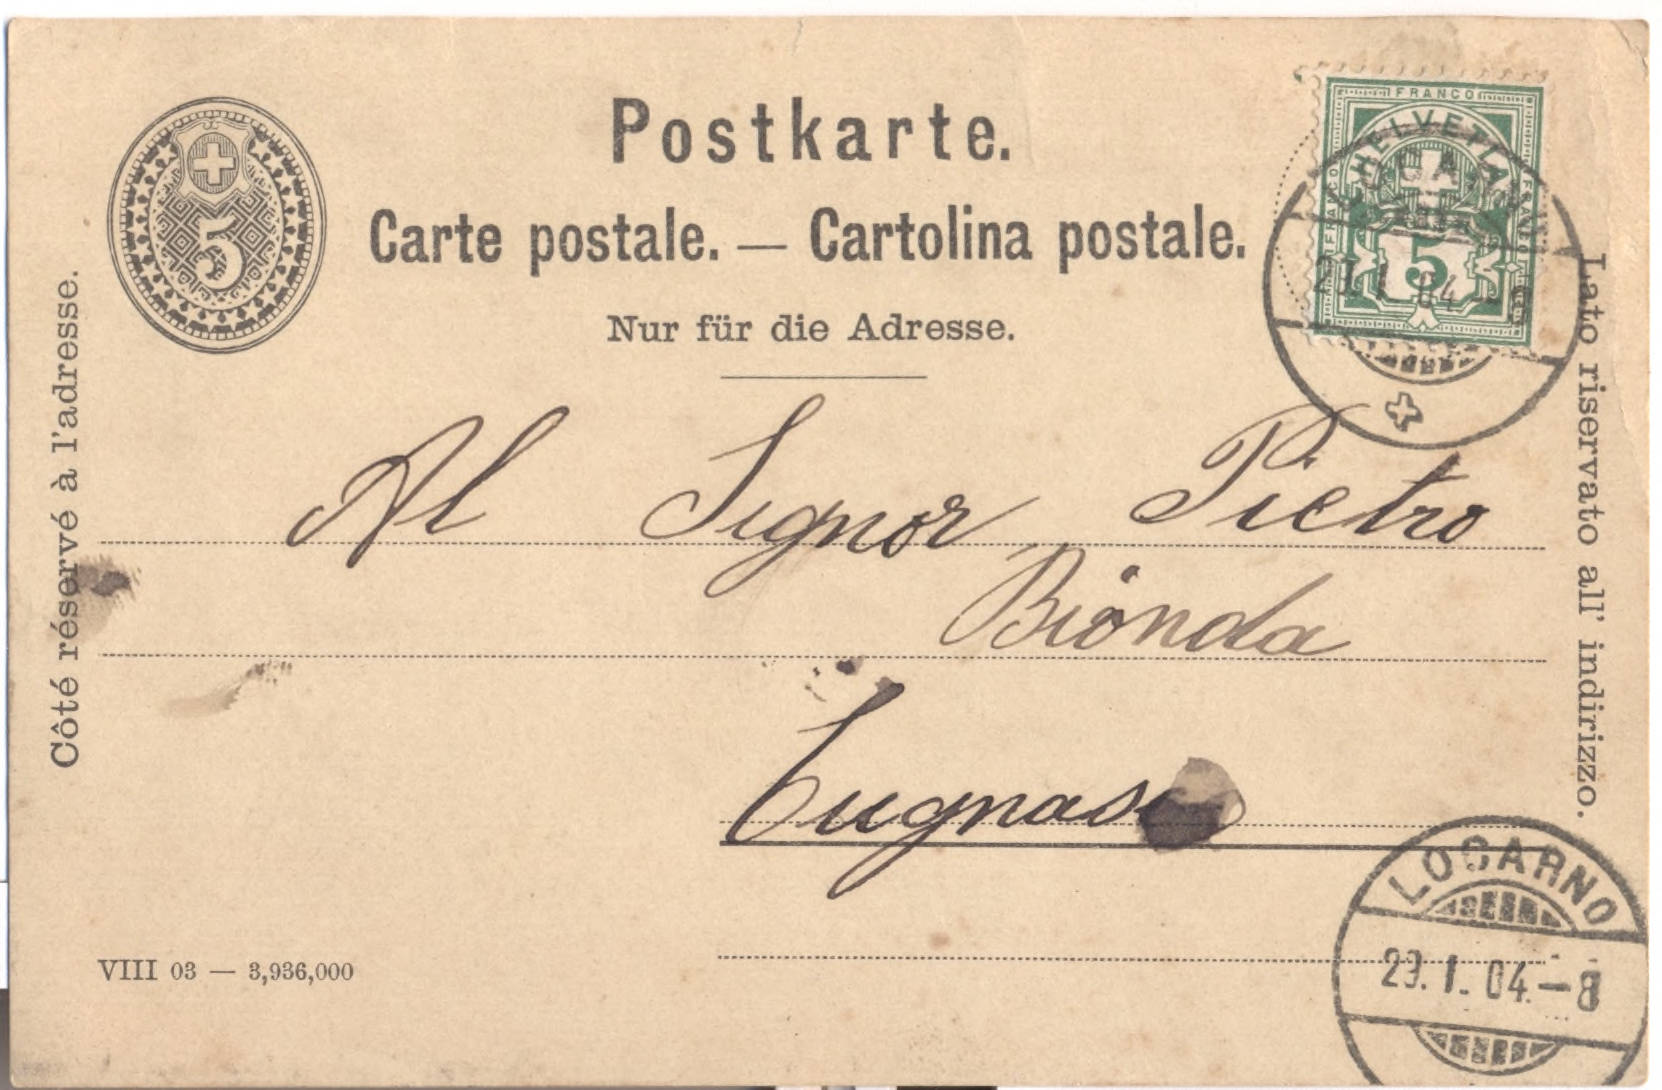 Postkarte.
Carte postale. — Cartolina postale.
Nur für die Adresse.
5
FRANCO
HELVETIA
FRANCO
FRANCO
5
Côté réservé à l'adresse.
Lato riservato all' indirizzo.
Al Signor Pietro
Bionda
LOCARNO
29.1.04.–8
VIII 03 — 3,936,000